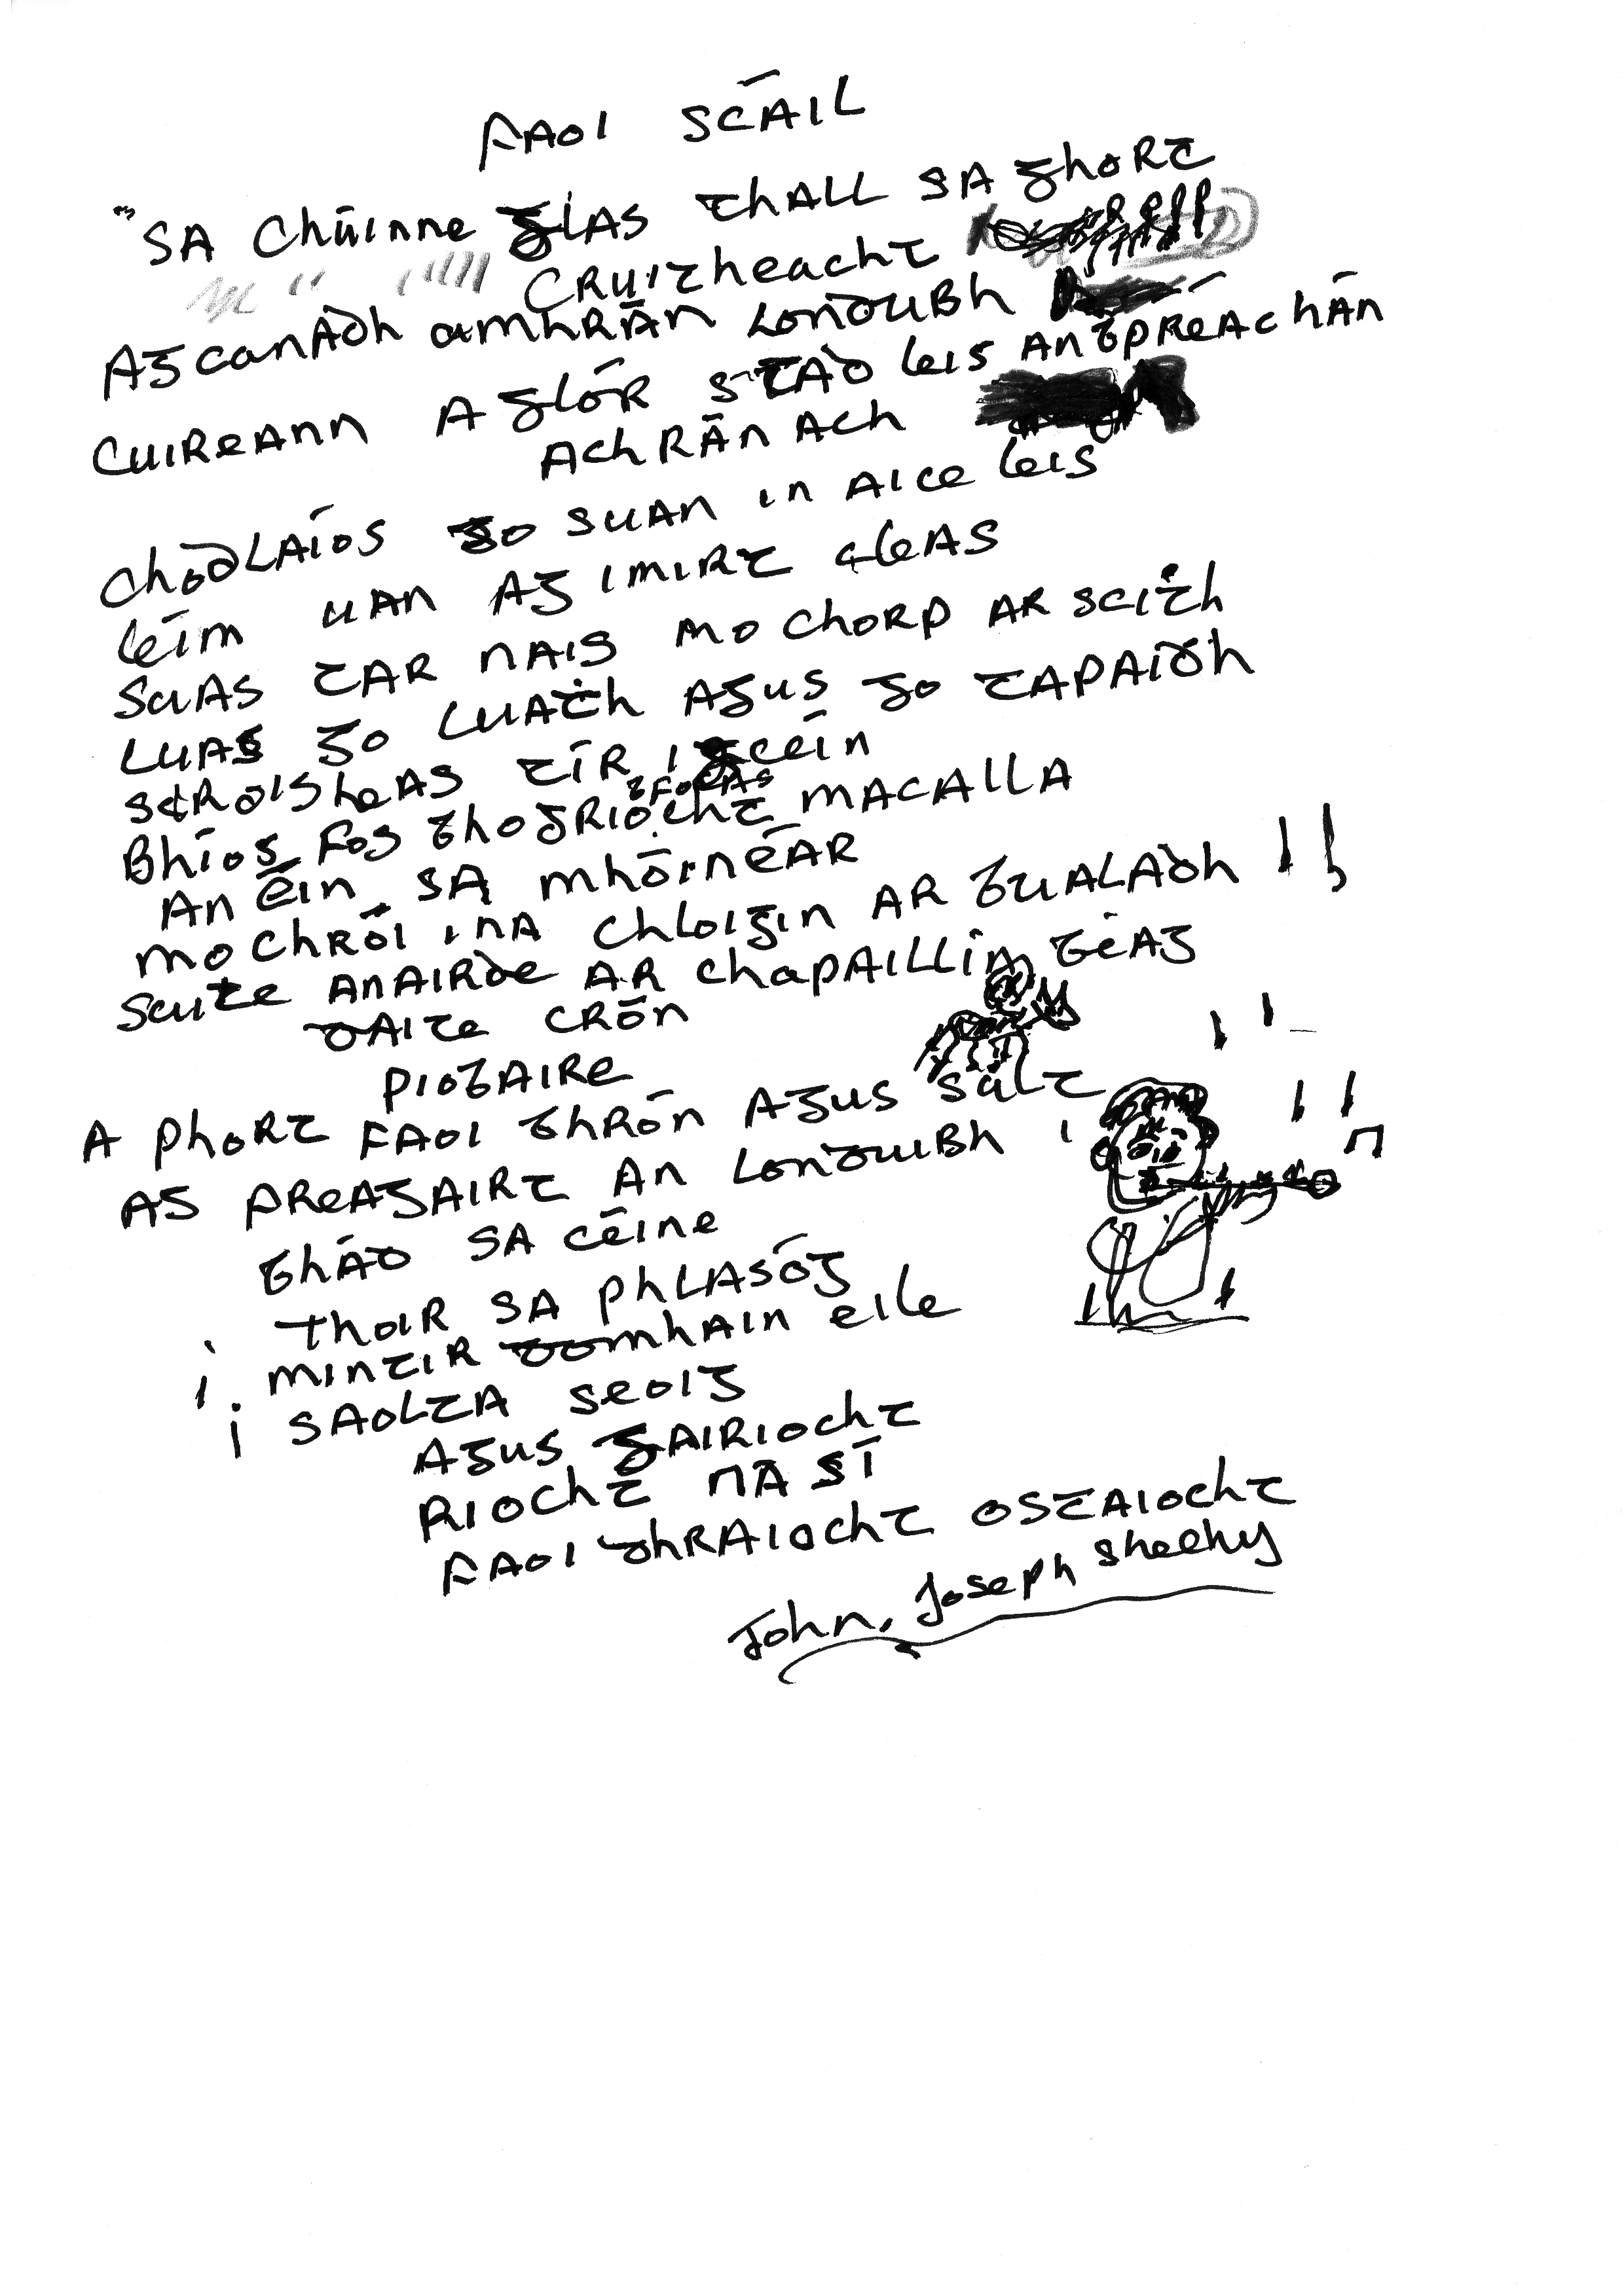 FAOI SCÁIL
"SA Chúinne glAS thALL SA ghORt
CRuithеacht
Ag canAdh amhRÁn LonduBh
CuiReAnn A glóR StAd leiS An bpRéAchÁn
AchRÁnAch
ChodLAíoS go SuAn in Aice leiS
léim uAn Ag imiRt cleAS
SuAS tAR nAiS mo choRp AR Scíth
LuAS go LuAth AguS go tApAidh
SRoiSheAS tíR i gcéin
bFocAS
BhíoS FoS thogRíocht mAcAllA
An éin SA mhóinéAR
mo chRóí inA chLoigín AR buALAdh !!
Suite AnAiRde AR chApAiLLín beAg
dAite CRón
píobAiRe
A phoRt FAoi bhRón AguS SúLt
AS pReAgAiRt An LonduiBh
bhÁd SA céine
thoiR SA phLASóg
i mintiR domhAin eile
i SAoLtA Seoig
AguS gAiRíocht
Ríocht nA Sí
FAoi dhRAíocht oStAíocht
John, Joseph Sheehy